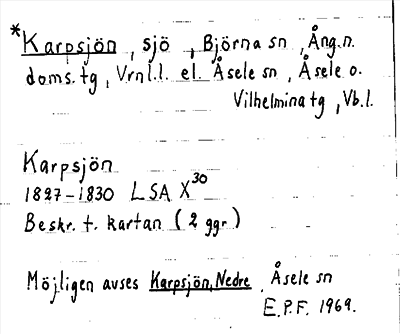 *Karpsjön, sjö, Björna sn, Ång.n.
doms.tg, Vrnl.l. el. Åsele sn, Åsele o.
Vilhelmina tg, Vb.l.
Karpsjön
1827-1830 LSA X30
Beskr. t. kartan (2 ggr)
Möjligen avses Karpsjön, Nedre, Åsele sn
E.P.F. 1969.